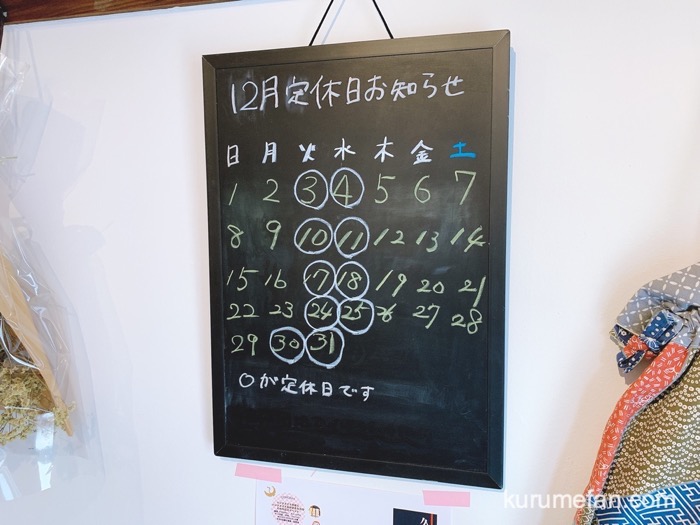 12月定休日お知らせ
日 月 火 水 木 金 土
1 2 3 4 5 6 7
8 9 10 11 12 13 14
15 16 17 18 19 20 21
22 23 24 25 26 27 28
29 30 31
○が定休日です
kurumefan.com